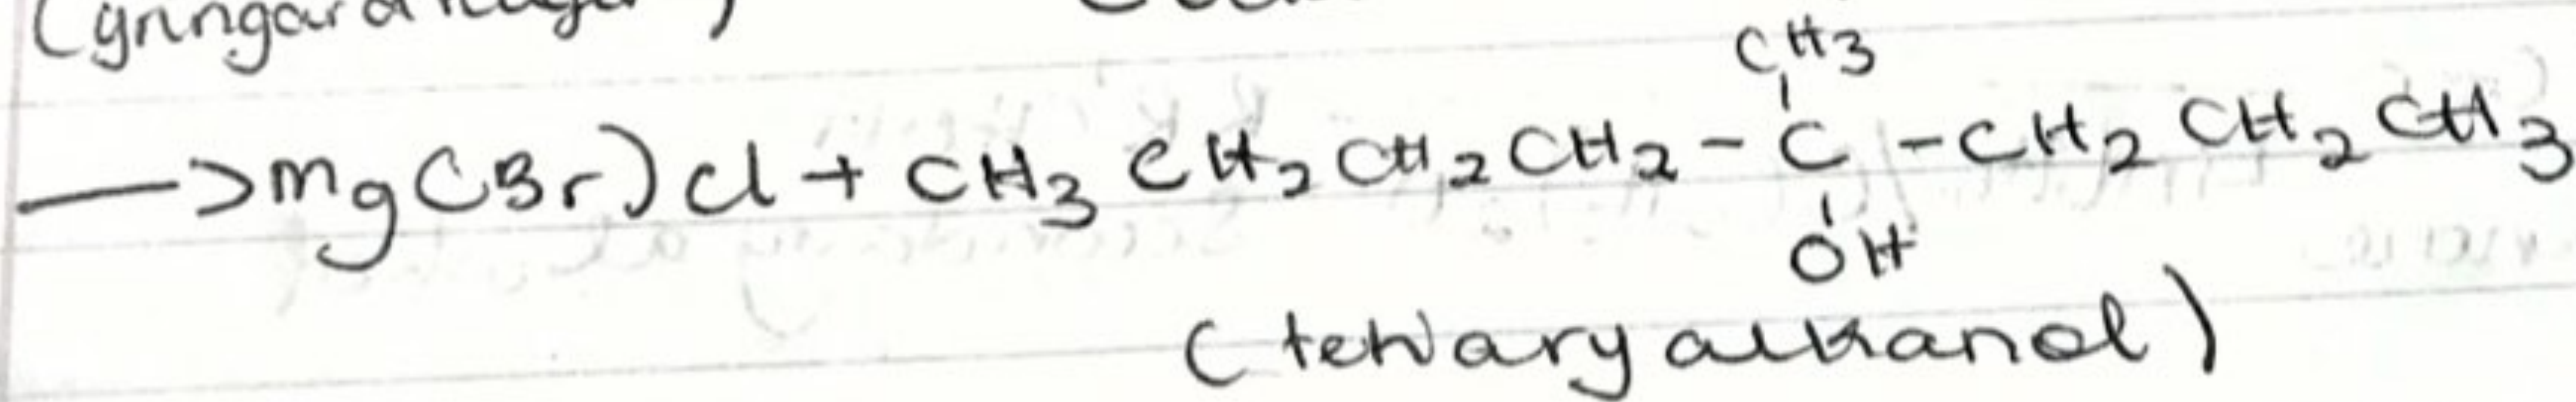 (gringard
CH3
—>mg(Br)cl + CH3CH2CH2CH2-C-CH2CH2CH3
OH
(tertiary alkanol)